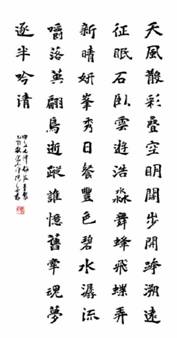 天風散彩疊空明閒步閒跡溯遠
征眠石臥雲遊浩淼舞蜂飛蝶弄
新晴妍峯秀日餐豐色碧水潺流
嚼落英翩鳥逝蹤誰憶舊牽魂夢
逐半吟清